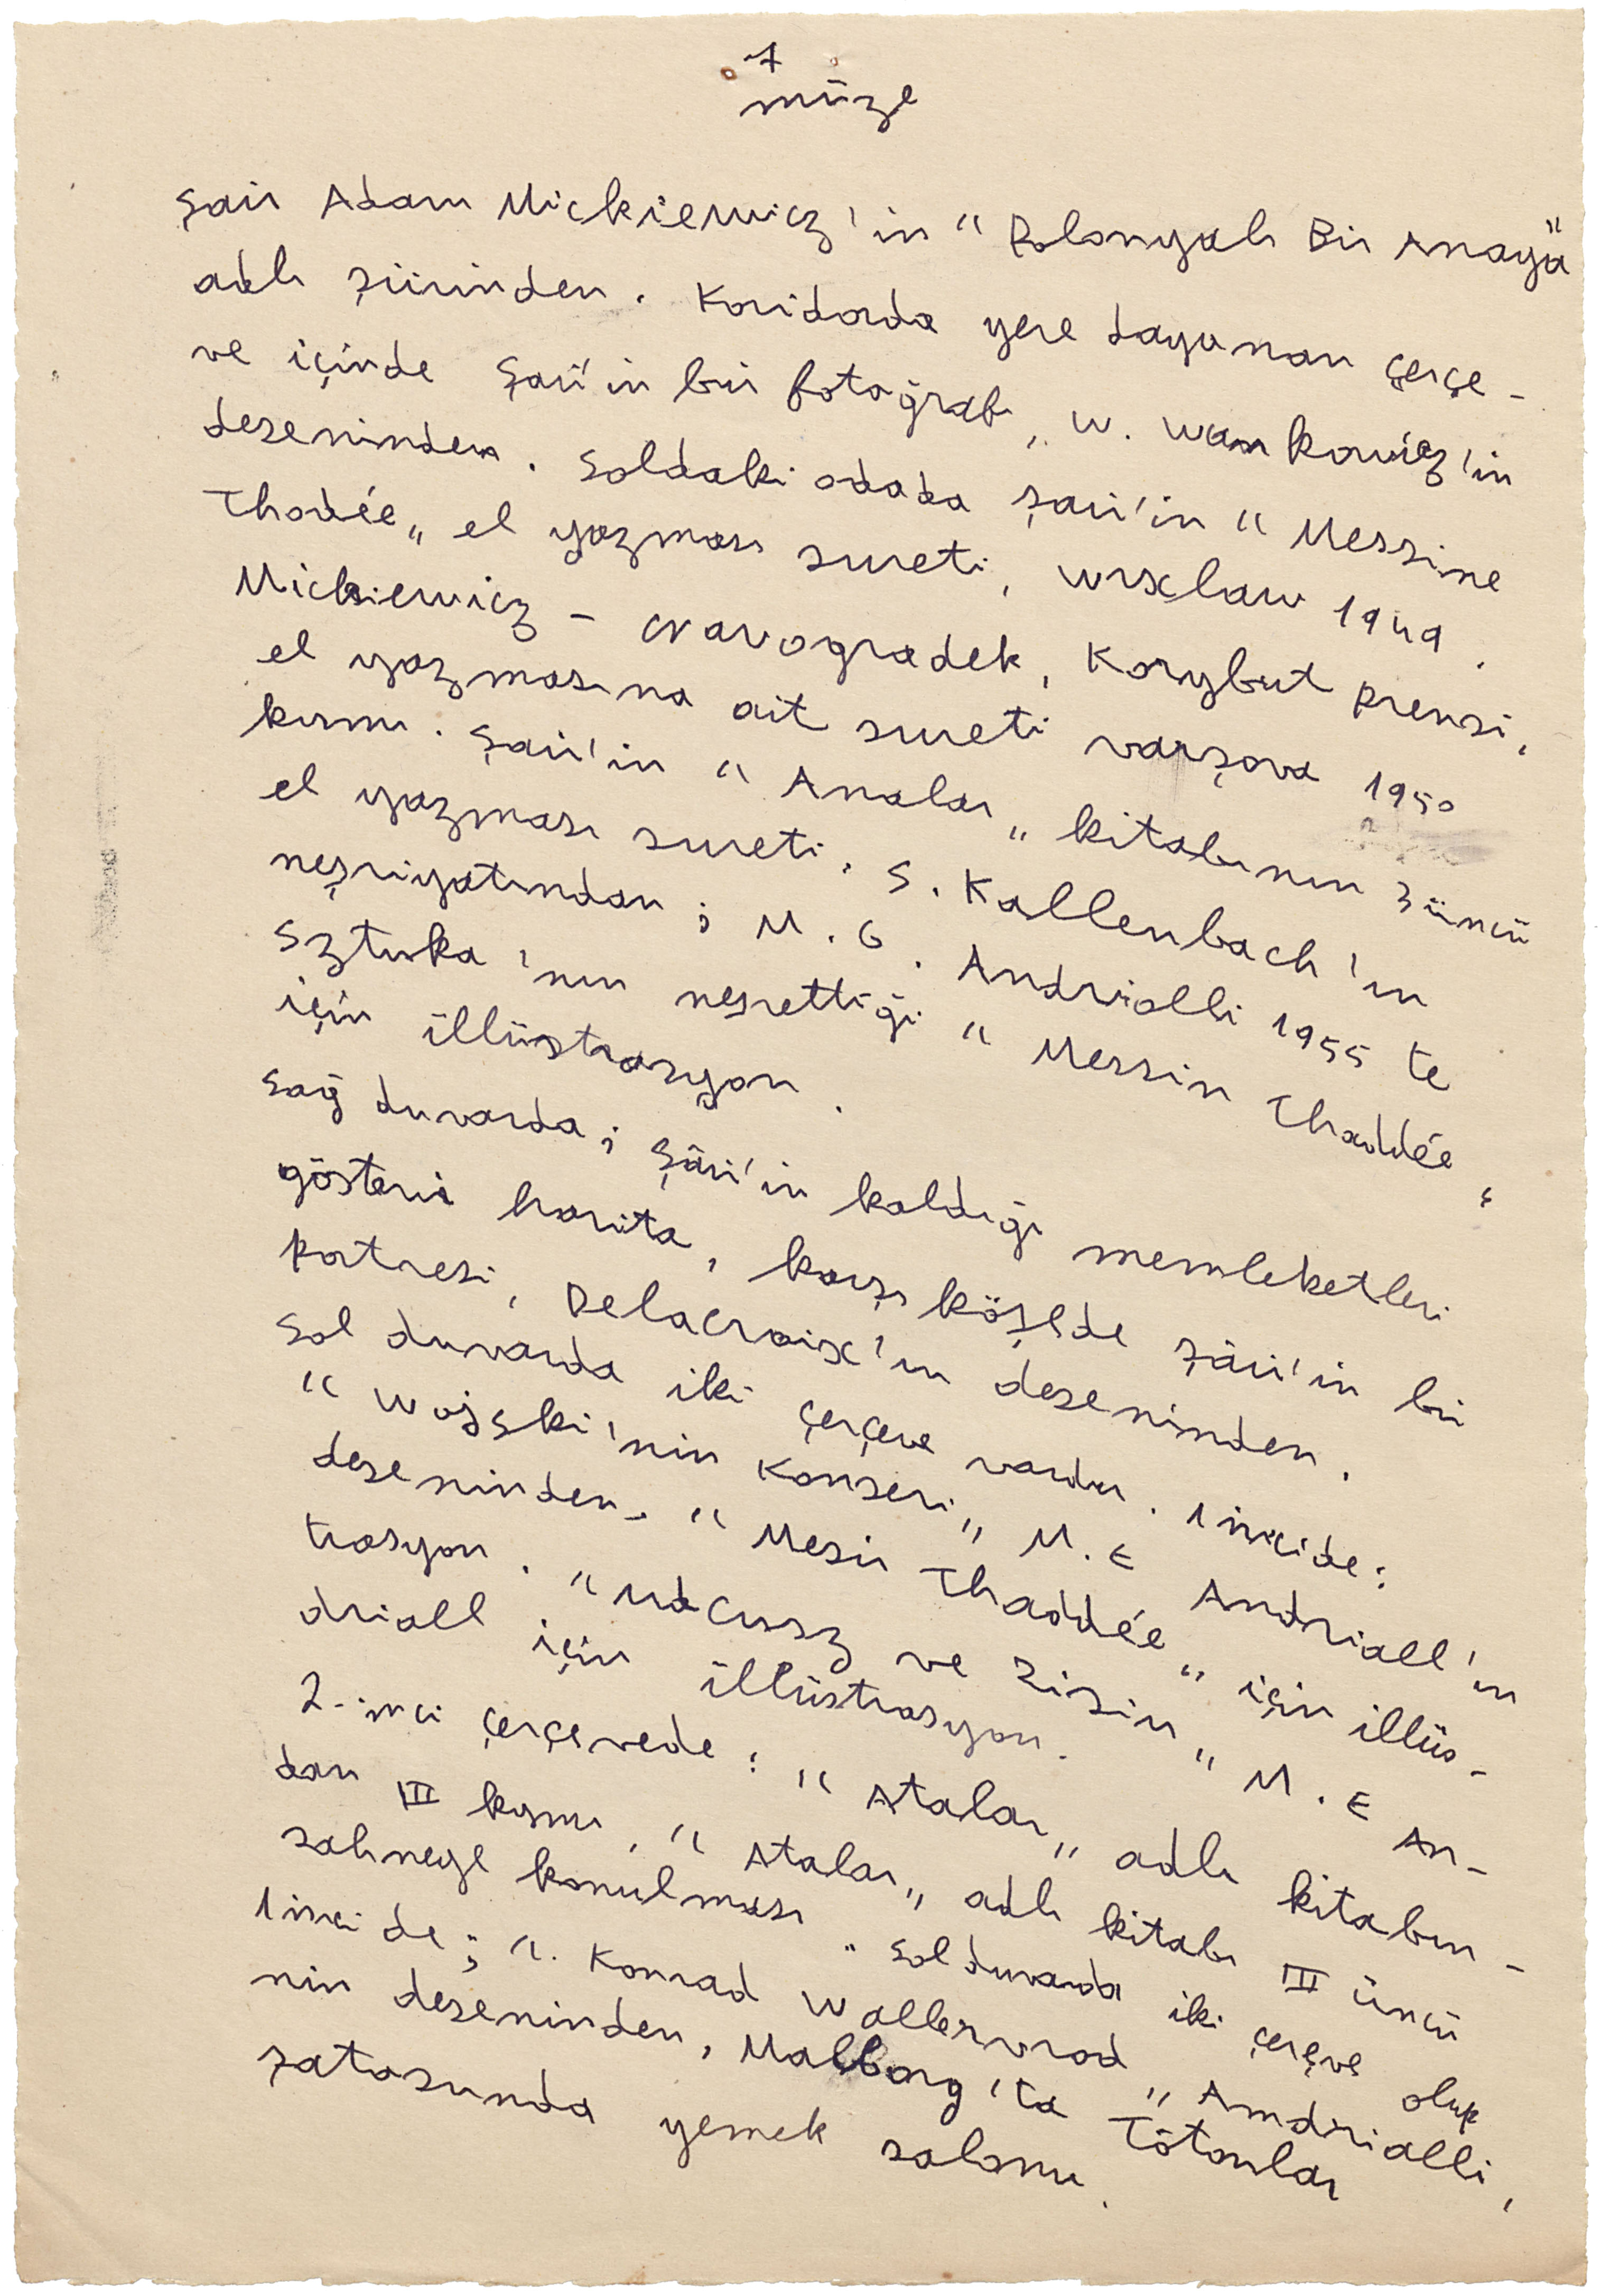 7
müze
Şair Adam Mickiewicz'in "Polonyalı Bir Anaya"
adlı şiirinden. Koridorda yere dayanan çerçe-
ve içinde Şair'in bir fotoğrafı, W. Wankowicz'in
deseninden. Soldaki odada Şair'in "Messire
Thadée„ el yazması sureti, Wrxlaw 1949.
Mickiewicz - Navogradek, Korybut prensi,
el yazmasına ait sureti varşova 1950
kısmı. Şair'in "Analar„ kitabının 3üncü
el yazması sureti. S. Kallenbach'ın
neşriyatından; M. G. Andriolli 1955 te
Sztuka'nın neşrettiği "Messin Thaddée„
için illüstrasyon.
Sağ duvarda; Şair'in kaldığı memleketleri
gösterir harita, karşı köşede şair'in bir
portresi, Delacroix'ın deseninden.
Sol duvarda iki çerçeve vardır. 1incide:
"Wojski'nin Konseri„ M. E Andriall'ın
deseninden. "Mesir Thaddée" için illüs-
trasyon. ve Zisin„ M. E An-
driall için illüstrasyon.
2-inci çerçevede: "Atalar„ adlı kitabın-
dan III kısmı. "Atalar„ adlı kitabı III üncü
sahneye konulması. Sol duvarda iki çerçeve olup
1incide; "Konrad Wallenrod„ Amdrialli,
nin deseninden, Malborg'ta Tötonlar
şatosunda yemek salonu.